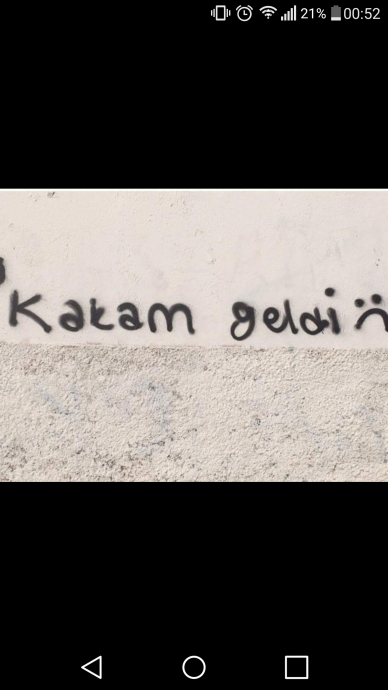 21% 00:52
Kakam geldi :(